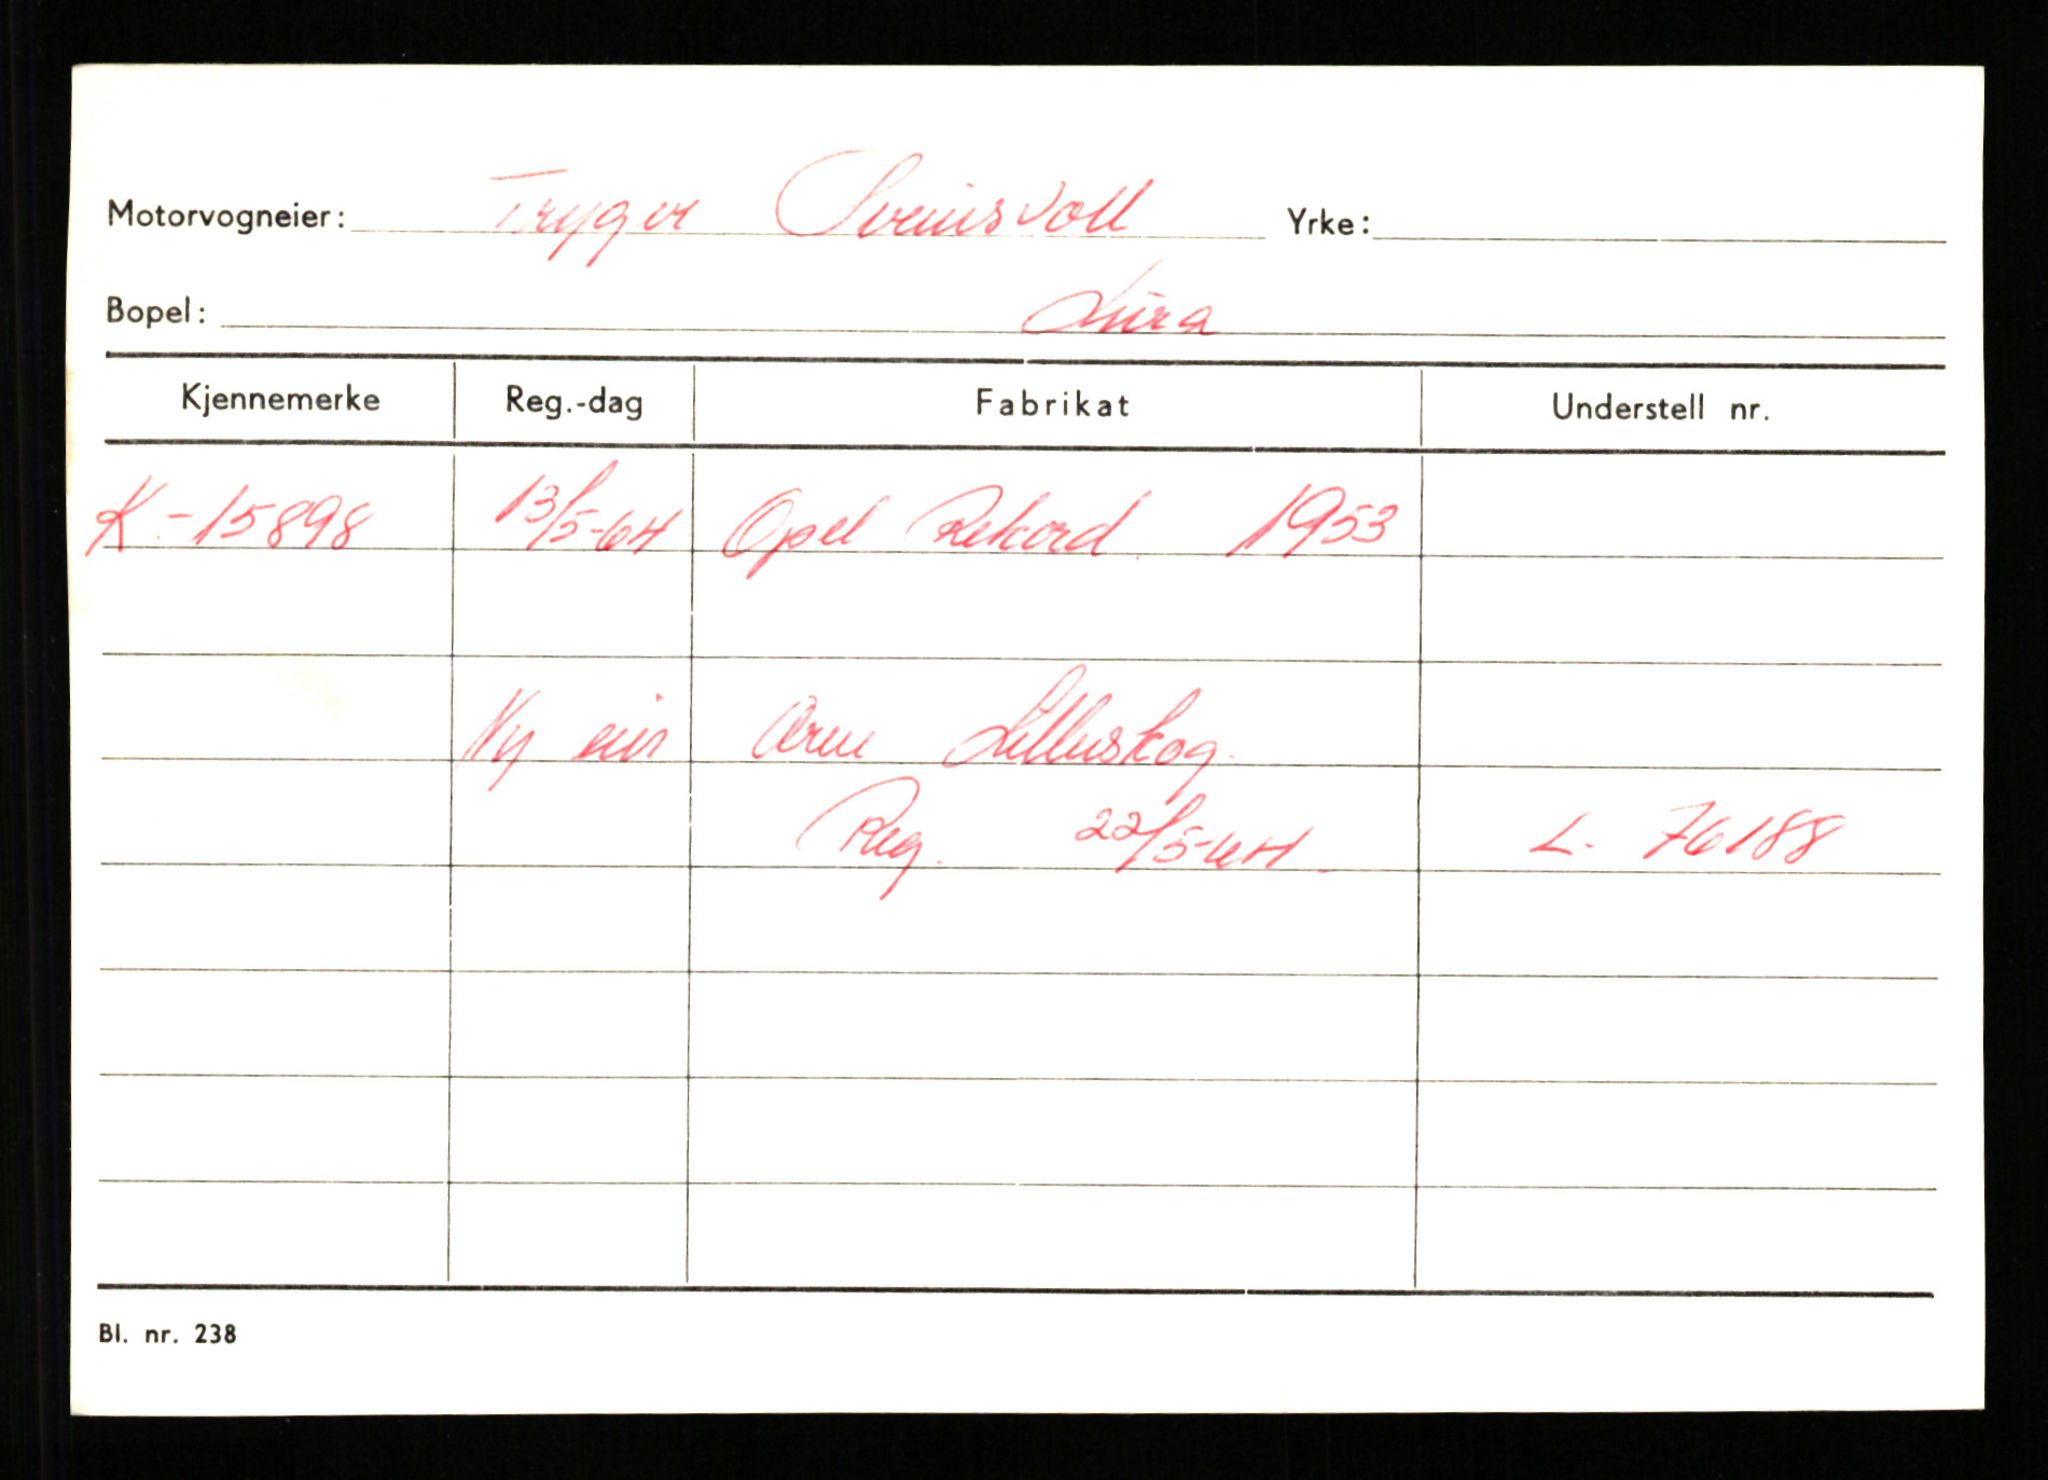 Motorvogneier: Trygve Sveinsvoll Yrke:
Bopel: Lura
Kjennemerke Reg.-dag Fabrikat Understell nr.
K.-15898 13/5-64 Opel Rekord. 1953
Ny eier Arne Lilleskog.
Reg. 22/5-64. L. 76188
Bl. nr. 238